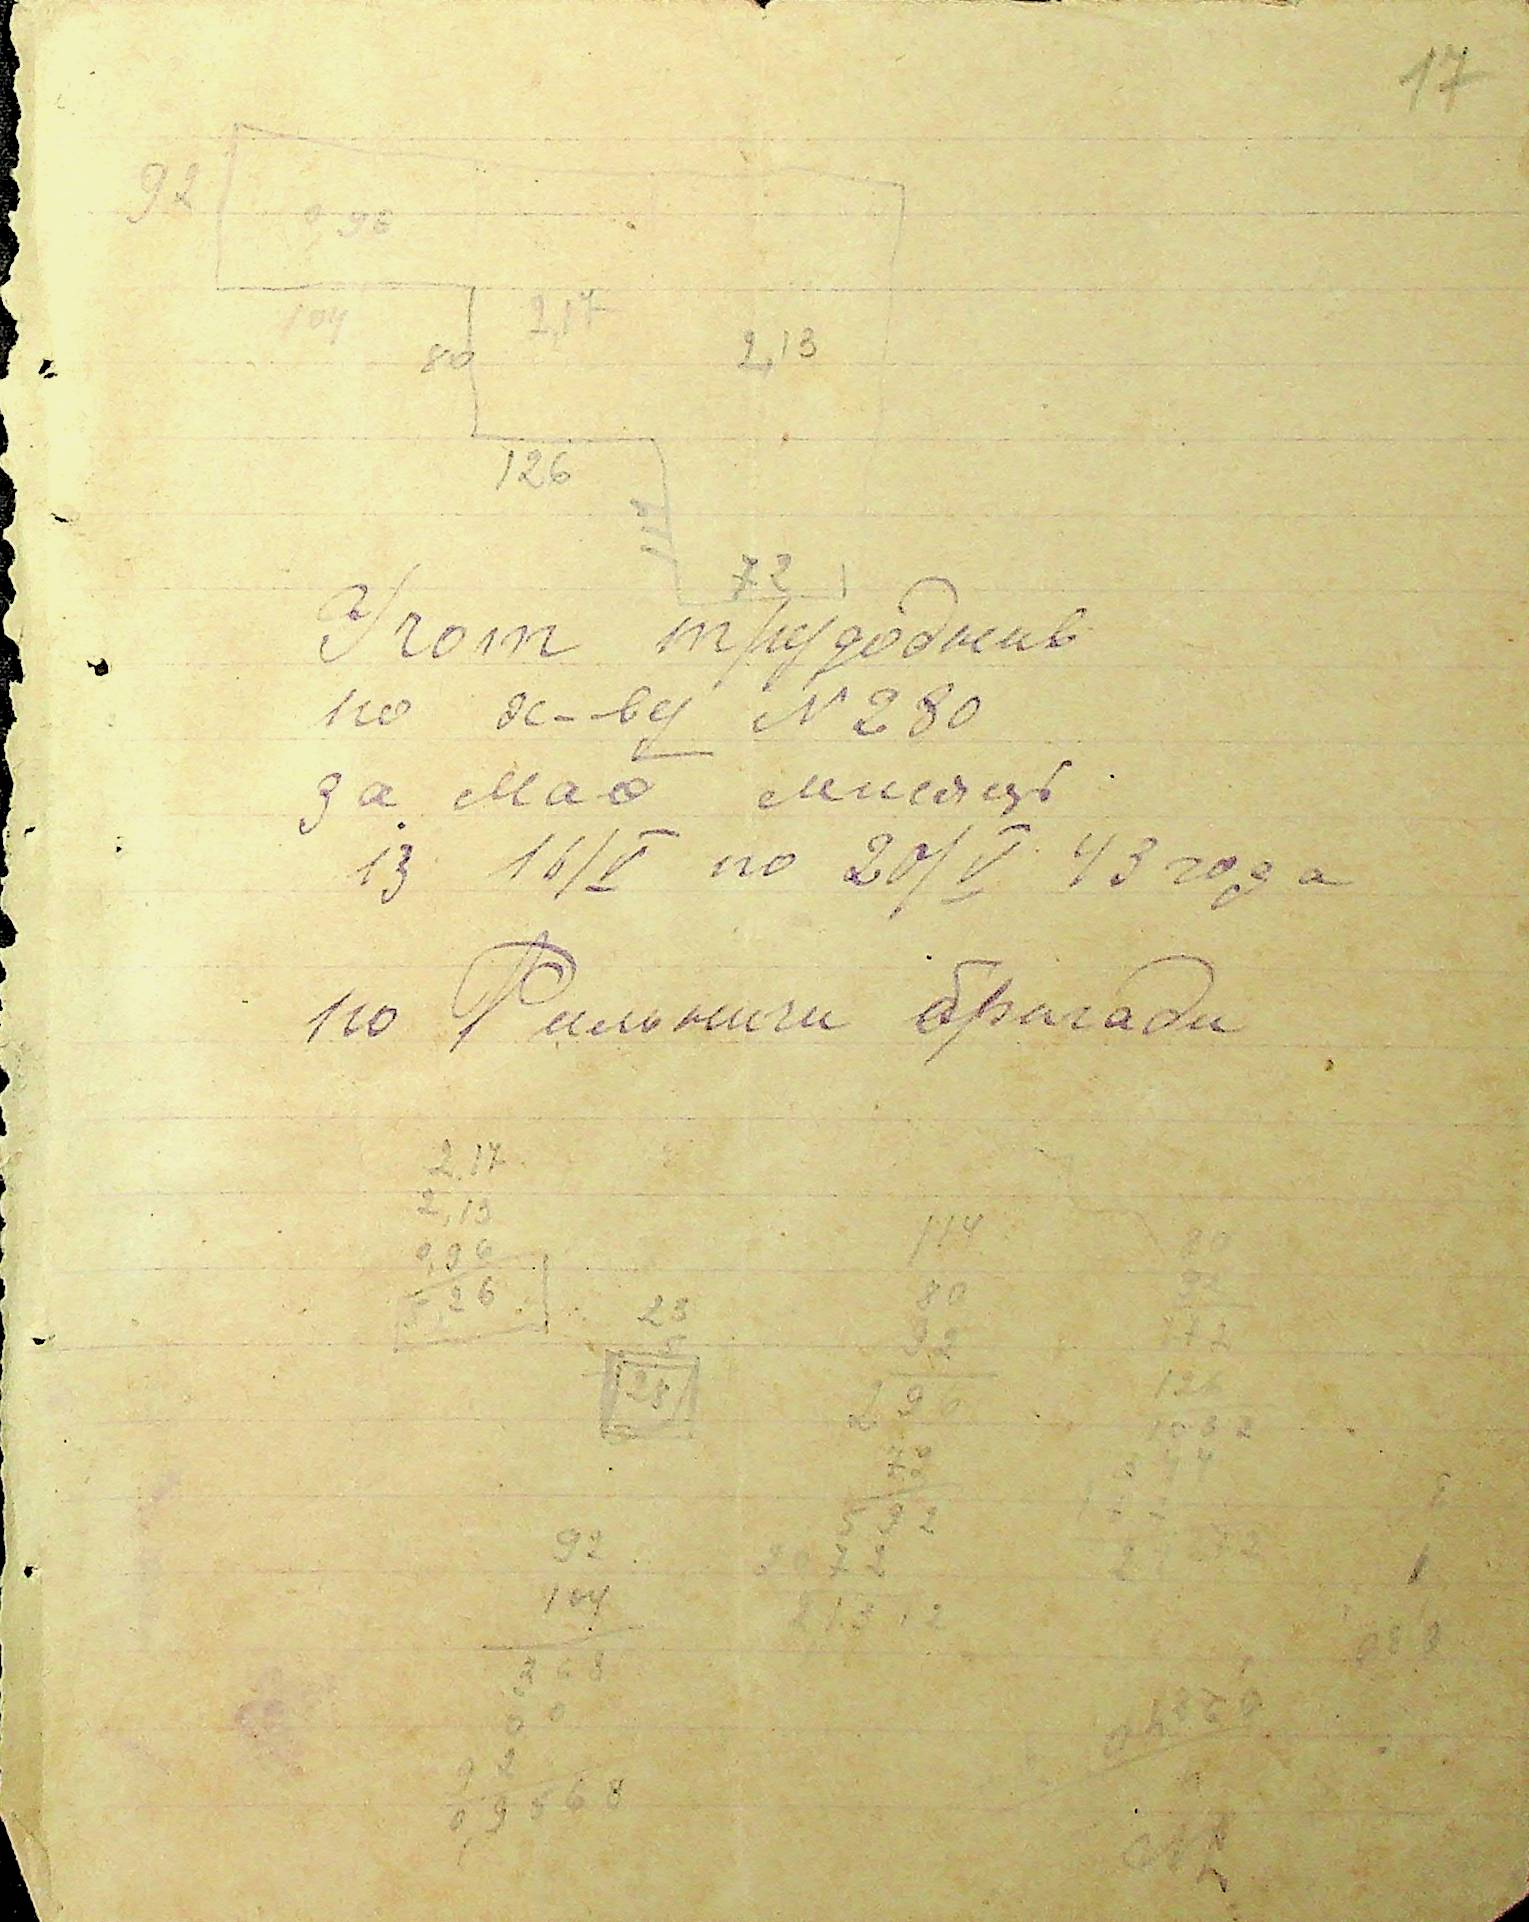 17
92
0,96
104
2,17
80
2,13
126
114
72
Учот трудоднів
по х-ву N 280
за май мисяць
із 16/V по 20/V 43 года
по Рильничи бригади
2,17
2,13
0,96
5,26
23
5
28
114
80
92
296
72
592
2072
21312
80
92
172
126
1032
344
172
92
104
368
00
92
0,9568